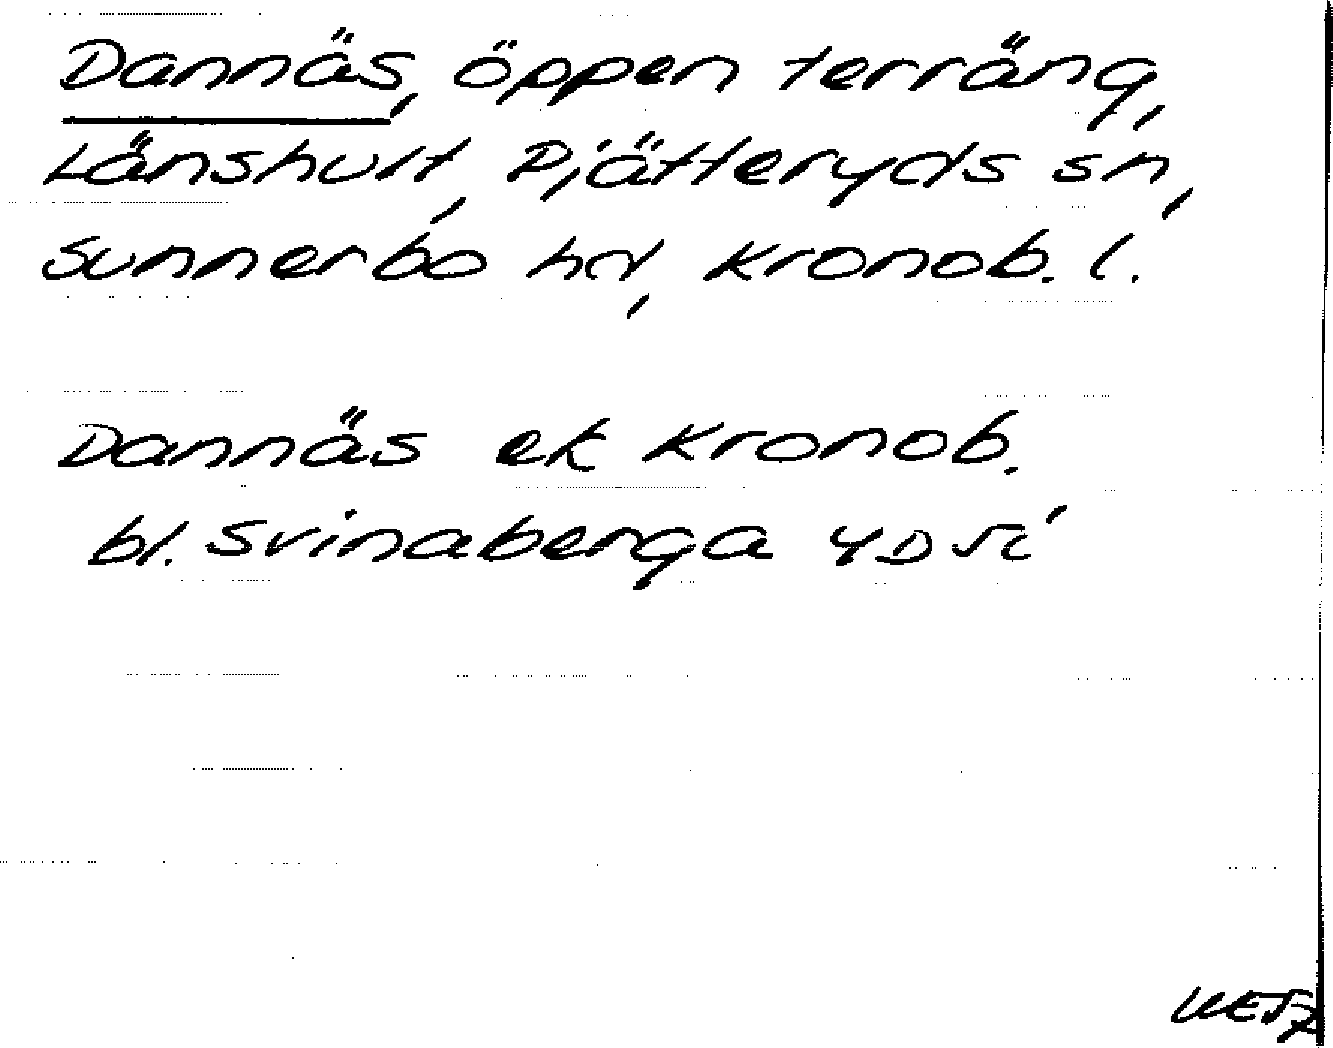 Dannäs, öppen terräng,
Länshult, Pjätteryds sn,
Sunnerbo hd, Kronob. l.
Dannäs ek Kronob.
bl. Svinaberga 4D